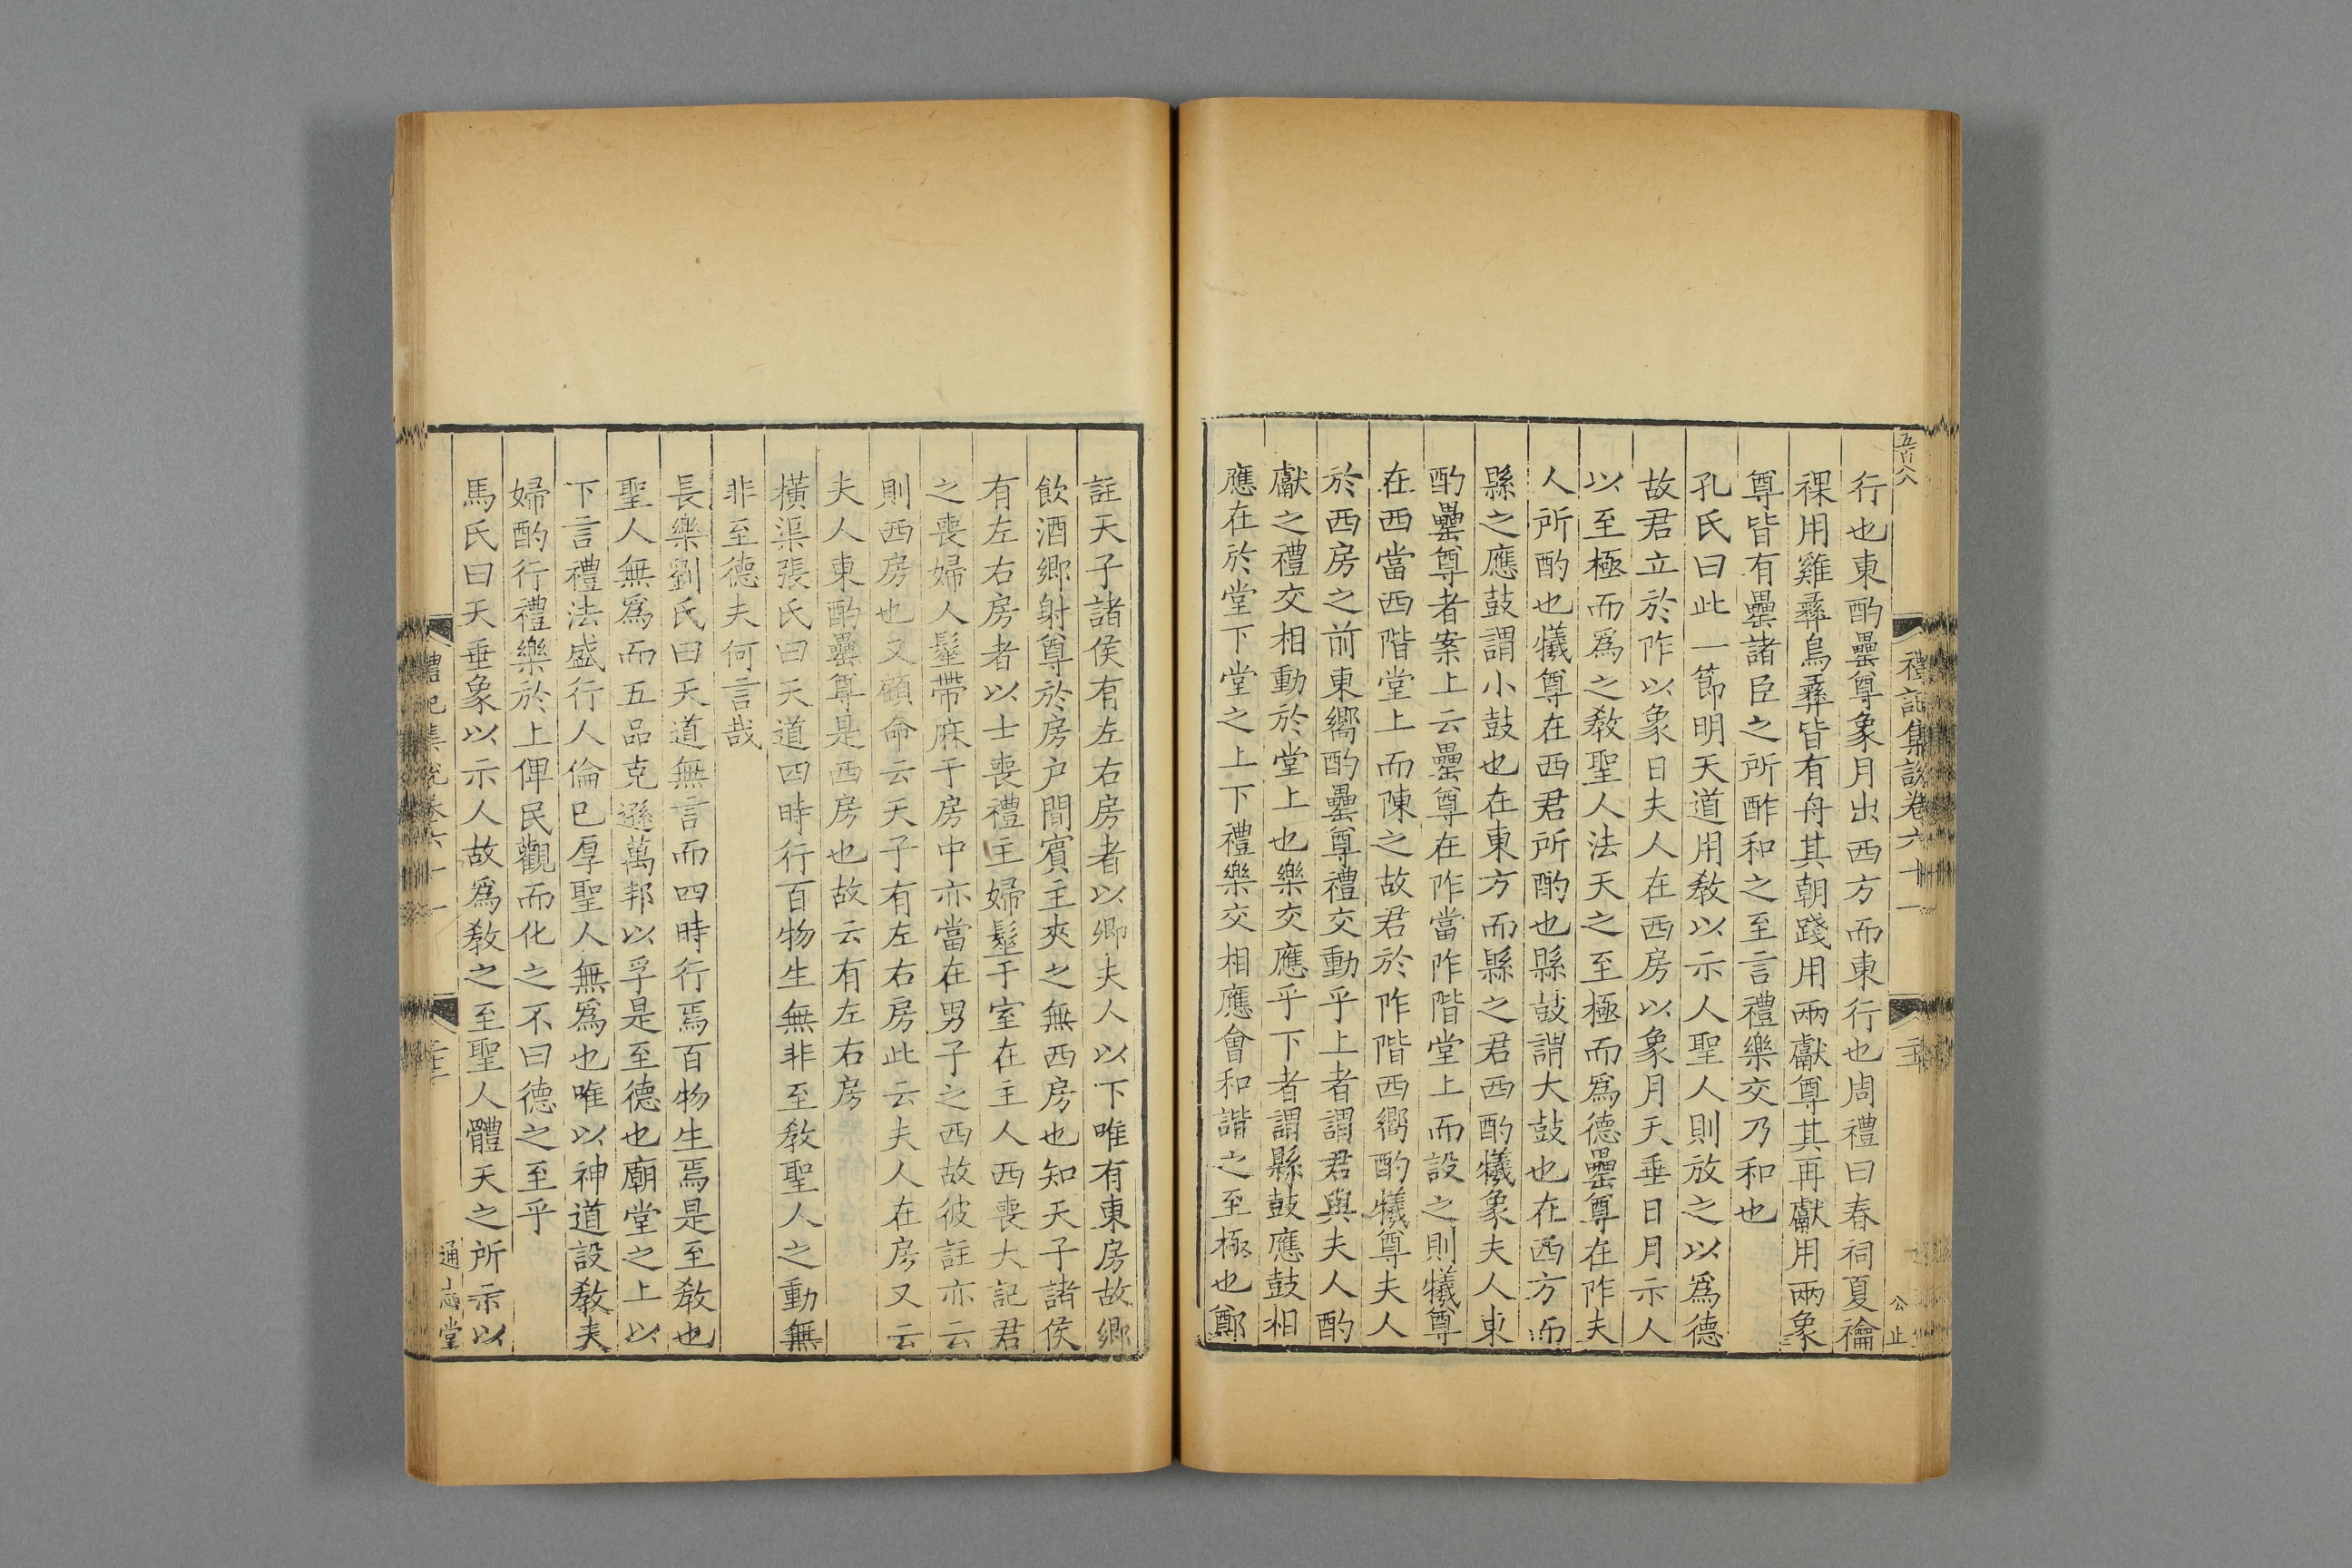 禮記集説卷六十一
行也東酌罍尊象月出西方而東行也周禮曰春祠夏禴
祼用雞彝鳥彝皆有舟其朝踐用兩獻尊其再獻用兩象
尊皆有罍諸臣之所酢和之至言禮樂交乃和也
孔氏曰此一節明天道用教以示人聖人則放之以爲德
故君立於阼以象日夫人在西房以象月天垂日月示人
以至極而爲之教聖人法天之至極而爲德罍尊在阼夫
人所酌也犧尊在西君所酌也縣鼓謂大鼓也在西方而
縣之應鼓謂小鼓也在東方而縣之君西酌犧象夫人東
酌罍尊者案上云罍尊在阼當阼階堂上而設之則犧尊
在西當西階堂上而陳之故君於阼階西嚮酌犧尊夫人
於西房之前東嚮酌罍尊禮交動乎上者謂君與夫人酌
獻之禮交相動於堂上也樂交應乎下者謂縣鼓應鼓相
應在於堂下堂之上下禮樂交相應會和諧之至極也鄭
註天子諸侯有左右房者以卿大夫以下唯有東房故鄉
飲酒鄉射尊於房户間賓主夾之無西房也知天子諸侯
有左右房者以士喪禮主婦髽于室在主人西喪大記君
之喪婦人髽帶麻于房中亦當在男子之西故彼註亦云
則西房也又顧命云天子有左右房此云夫人在房又云
夫人東酌罍尊是西房也故云有左右房
橫渠張氏曰天道四時行百物生無非至教聖人之動無
非至德夫何言哉
長樂劉氏曰天道無言而四時行焉百物生焉是至教也
聖人無爲而五品克遜萬邦以孚是至德也廟堂之上以
下言禮法盛行人倫已厚聖人無爲也唯以神道設教夫
婦酌行禮樂於上俾民觀而化之不曰德之至乎
馬氏曰天垂象以示人故爲教之至聖人體天之所示以
禮記集説卷六十一
通志堂